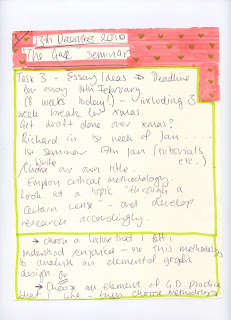 13th December 2010
The Gaze Seminar
Task 3 - Essay Ideas → Deadline
for essay 11th February.
(8 weeks today!) - including 3
week break for xmas.
Get draft done over xmas?
Richard in 1st week of Jan....
1st seminar 7th Jan (tutorials
etc.)
Write
Choose our own title.
Employ critical methodology.
Look at a topic "through a
certain lense" - and develop
research accordingly.
→ choose a lecture that I felt I
understood enjoyed - use this methodology
to analyse an element of graphic
design. Or
→ Choose an element of G.D. practice
that I like - then choose methodology